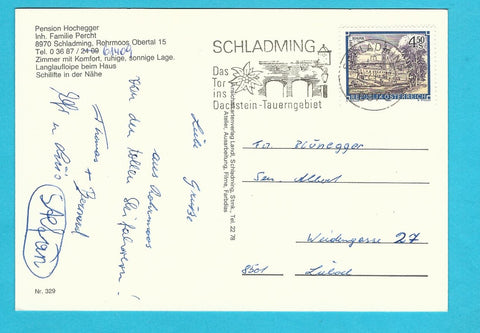 Pension Hochegger
Inh. Familie Percht
8970 Schladming, Rohrmoos Obertal 15
Tel. 0 36 87 / 24 00 61404
Zimmer mit Komfort, ruhige, sonnige Lage.
Langlaufloipe beim Haus
Schilifte in der Nähe
Liebe Grüsse
aus Rohrmoos
von den tollen Skifahrern!
Thomas + Bernard
Stefan
Nr. 329
SCHLADMING
Das
Tor
ins
Dachstein-Tauerngebiet
SCHLADMING
4.50
REPUBLIK ÖSTERREICH
Schladming, Stmk., Tel. 22 78
Fa. Blünegger
Sen. Albert
Weidengasse 27
8501 Lieboch